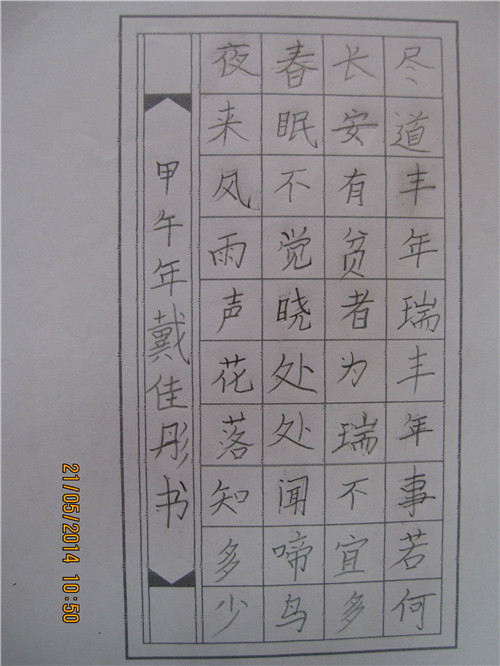 尽道丰年瑞丰年事若何
长安有贫者为瑞不宜多
春眠不觉晓处处闻啼鸟
夜来风雨声花落知多少
甲午年戴佳彤书
21/05/2014 10:50